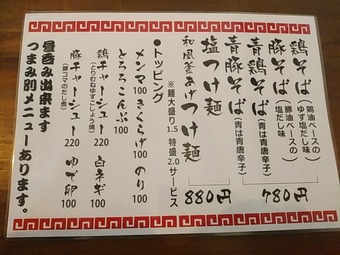 鶏そば(鶏油ベースのゆず塩だし味)
豚そば(豚油ベースの塩だし味)
青鶏そば(青は青唐辛子)
青豚そば(青は青唐辛子)
780円
塩つけ麺
和風釜あげつけ麺
880円
※麺大盛り1.5 特盛2.0サービス
●トッピング
メンマ100 きくらげ100 のり100
とろろこんぶ100
鶏チャーシュー220 白ネギ100
(とりむねゆずこしょう焼)
豚チャーシュー220 ゆで卵100
(豚コマのだし煮)
昼呑み出来ます
つまみ別メニューあります。